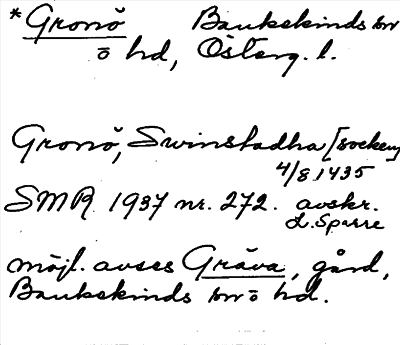 *Gronö Bankekinds sn
ö hd, Österg. l.
Gronö, Swinstadha [socken]
4/8 1435
SMR 1937 nr. 272. avskr.
L. Sparre
möjl. avses Gräva, gård,
Bankekinds sn ö hd.